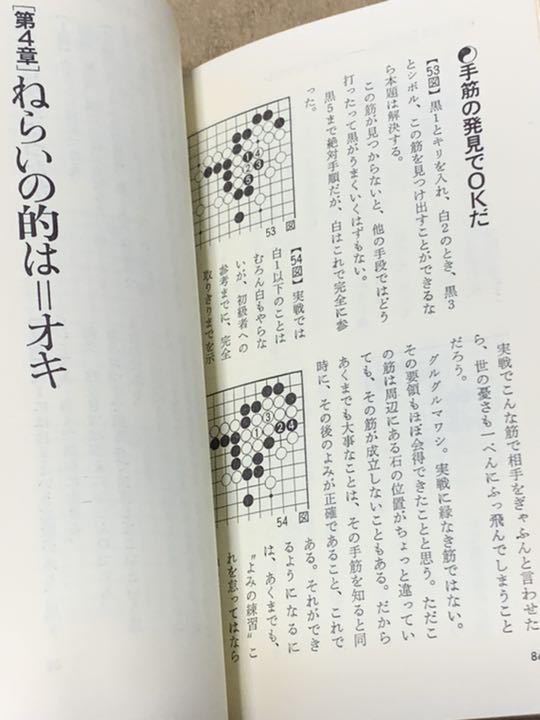 手筋の発見でOKだ
【53図】黒1とキリを入れ、白2のとき、黒3
とシボル、この筋を見つけ出すことができるな
ら本題は解決する。
この筋が見つからないと、他の手段ではどう
打ったって黒がうまくいくはずもない。
黒5まで絶対手順だが、白はこれで完全に参
った。
53図
【54図】実戦では
白1以下のことは
むろん白もやらな
いが、初級者への
参考までに、完全
取りきりまでを示
54図
実戦でこんな筋で相手をぎゃふんと言わせた
ら、世の憂さも一ぺんにふっ飛んでしまうこと
だろう。
グルグルマワシ。実戦に縁なき筋ではない。
その要領もほぼ会得できたことと思う。ただこ
の筋は周辺にある石の位置がちょっと違ってい
ても、その筋が成立しないこともある。だから
あくまでも大事なことは、その手筋を知ると同
時に、その後のよみが正確であること、これで
ある。それができ
るようになるに
は、あくまでも、
"よみの練習"こ
れを怠ってはなら
[第4章]ねらいの的は=オキ